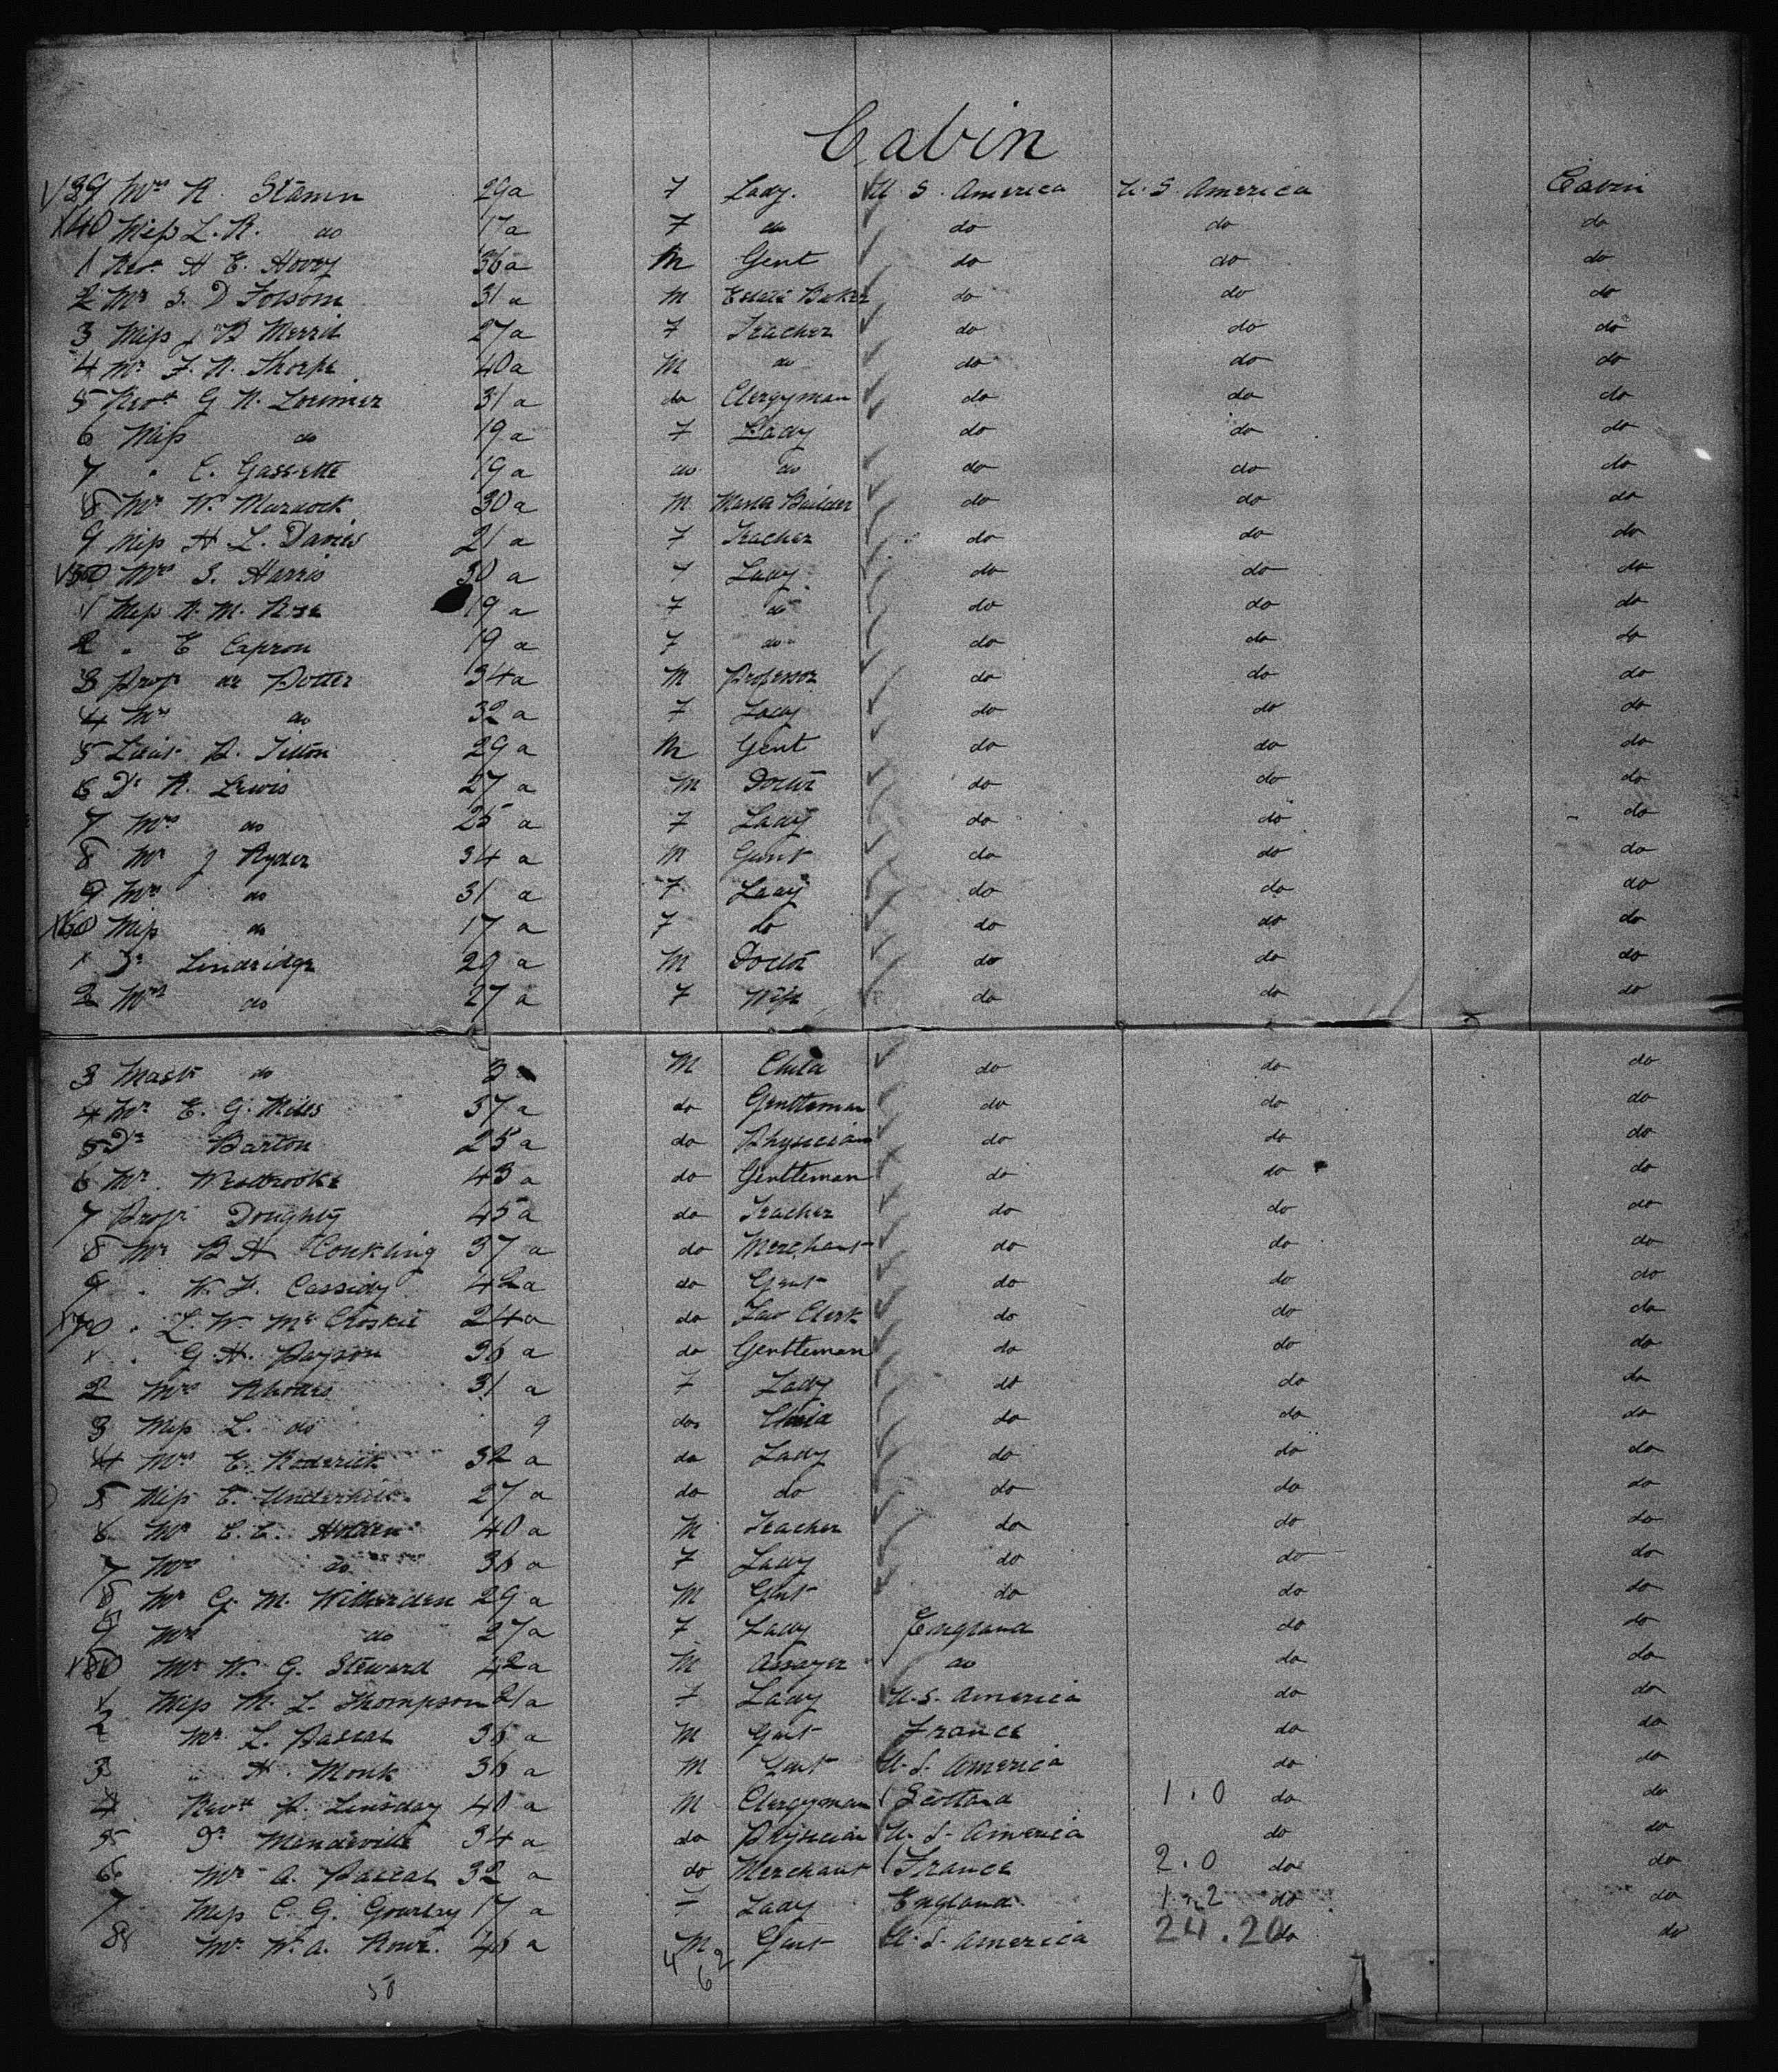 Cabin
39 Mrs R. Stamm 29a F Lady. U. S. America U. S. America Cabin
40 Miss L. R. do 17a F do do do do
1 Revd H E. Hovey 36a M Gent do do do
2 Mr S. D Folsom 31 a M Estate Broker do do do
3 Miss J B Merrit 27a F Teacher do do do
4 Mr F. N. Thorpe 40a M do do do do
5 Revd G N. Lorimer 31 a do Clergyman do do do
6 Miss do 19 a F Lady do do do
7 " C. Gassette 19 a do do do do do
8 Mr W. Murdock 30 a M Master Builder do do do
9 Miss H L. Davies 21 a F Teacher do do do
50 Mrs S. Harris 30 a F Lady do do do
1 Miss R. M. Rose 19 a F do do do do
2 " E Capron 19 a F do do do do
3 Prof de Potter 34a M Professor do do do
4 Mrs do 32 a F Lady do do do
5 Lieut R. Tilton 29 a M Gent do do do
6 Dr R. Lewis 27 a M Doctor do do do
7 Mrs do 25 a F Lady do do do
8 Mr J Ryder 34 a M Gent do do do
9 Mrs do 31 a F Lady do do do
60 Miss do 17 a F do do do do
1 Dr Lindridge 29 a M Doctor do do do
2 Mrs do 27 a F Wife do do do
3 Mastr do 3 M Child do do do
4 Mr E. G. Mills 37 a do Gentleman do do do
5 Dr Barton 25 a do Physician do do do
6 Mr. Westbrooke 43 a do Gentleman do do do
7 Prof. Doughty 45 a do Teacher do do do
8 Mr B H Conkling 37 a do Merchant do do do
9 " W. F. Cassidy 42a do Gent do do do
70 " L. W. Mc Choskie 24a do Law Clerk do do do
1 " G. H. Payson 36 a do Gentleman do do do
2 Mrs Rhodes 31 a F Lady do do do
3 Miss L. do 9 do Child do do do
4 Mrs E. Roderick 32 a do Lady do do do
5 Miss E. Underhill 27 a do do do do do
6 Mr C. E. Holden 40 a M Teacher do do do
7 Mrs do 36 a F Lady do do do
8 Mr G. M. Witherden 29 a M Gent do do do
9 Mrs do 27a F Lady England do do
80 Mr W. G. Steward 42a M Assayer do do do
1 Miss M. L. Thompson 21a F Lady U. S. America do do
2 Mr. L. Pascal 35 a M Gent France do do
3 " H. Monk 36 a M Gent U. S. America do do
4 Revd P. Linsday 40 a M Clergyman Scotland 1.0 do do
5 Dr Mandeville 34 a do Physician U. S. America do do
6 Mr A. Pascal 32 a do Merchant France 2.0 do do
7 Miss C. G. Gourlay 17 a F Lady England 1.2 do do
88 Mr. W. A. Rowe. 46 a M Gent U. S. America 24.20 do do
50 4 6 2